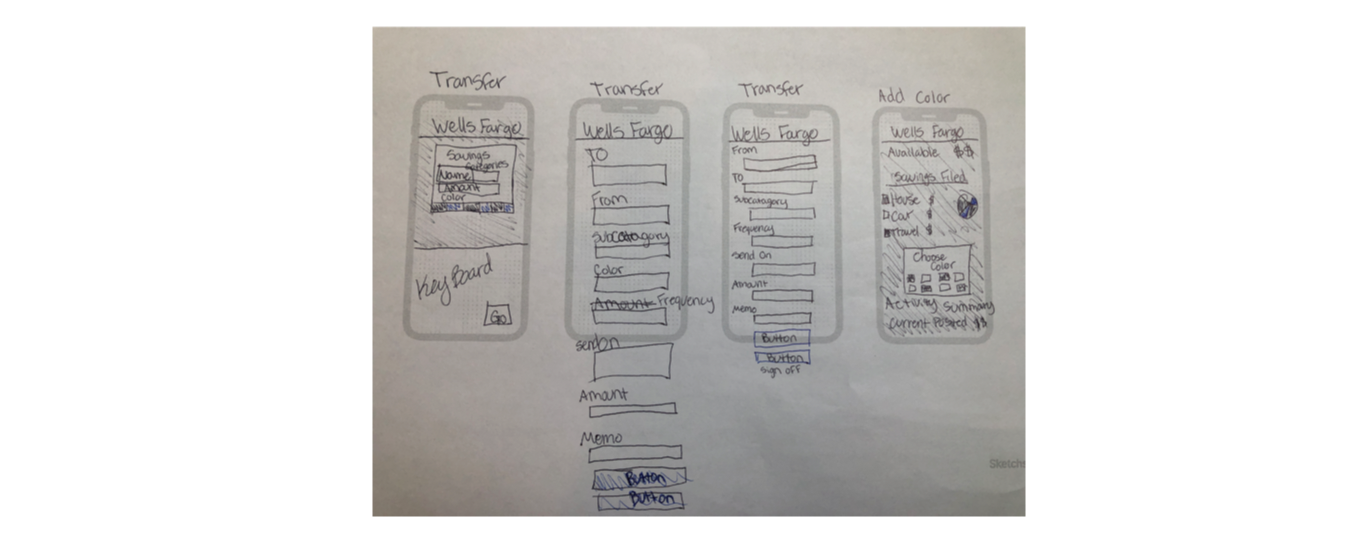 Transfer
Wells Fargo
Savings
Name
Amount
Color
KeyBoard
Go
Transfer
Wells Fargo
TO
From
Subcatagory
Color
Amount Frequency
sendOn
Amount
Memo
Button
Button
Transfer
Wells Fargo
From
TO
Subcatagory
Frequency
Send On
Amount
Memo
Button
Button
sign off
Add Color
Wells Fargo
Available $$
Savings Filed
House $
Car $
Travel $
Choose
Color
Activity Summary
Current Posted $$
Sketch